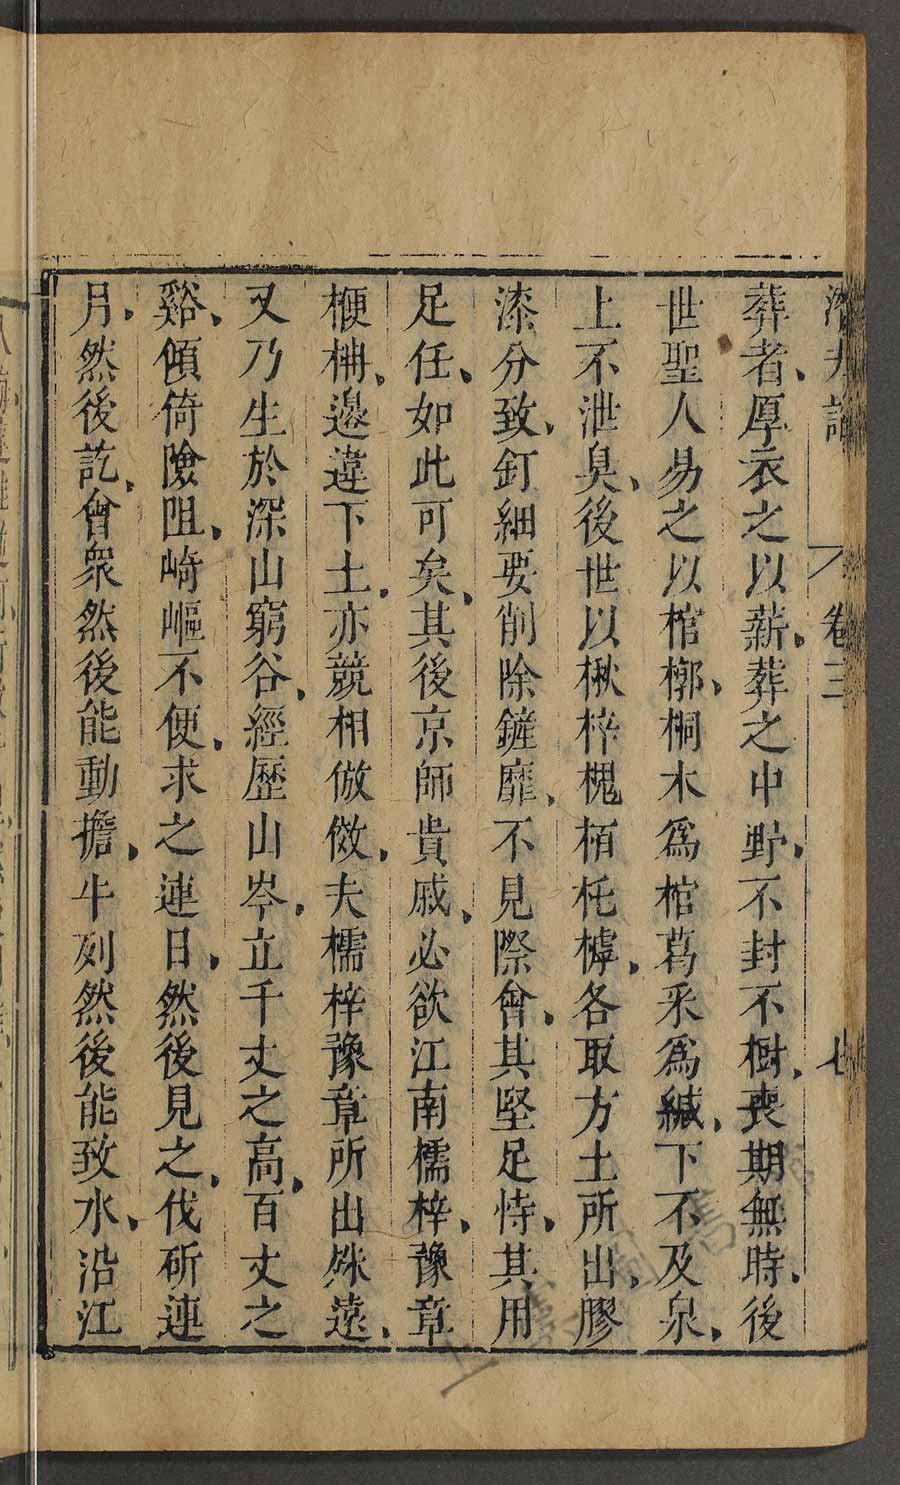 潛夫論 卷三 七
葬者、厚衣之以薪、葬之中野、不封不樹、喪期無時、後
世聖人易之以棺槨、桐木爲棺葛采爲緘、下不及泉、
上不泄臭、後世以楸梓槐栢杔樗、各取方土所出、膠
漆分致、釘細要削除鏟靡、不見際會、其堅足恃、其用
足任、如此可矣、其後京師貴戚、必欲江南檽梓、豫章
楩柟、邉違下土、亦競相倣傚、夫檽梓豫章所出殊遠、
又乃生於深山窮谷、經歷山岑、立千丈之高、百丈之
谿、傾倚險阻、崎嶇不便、求之連日、然後見之、伐斫連
月、然後訖、會衆然後能動擔、牛列然後能致水、沿江